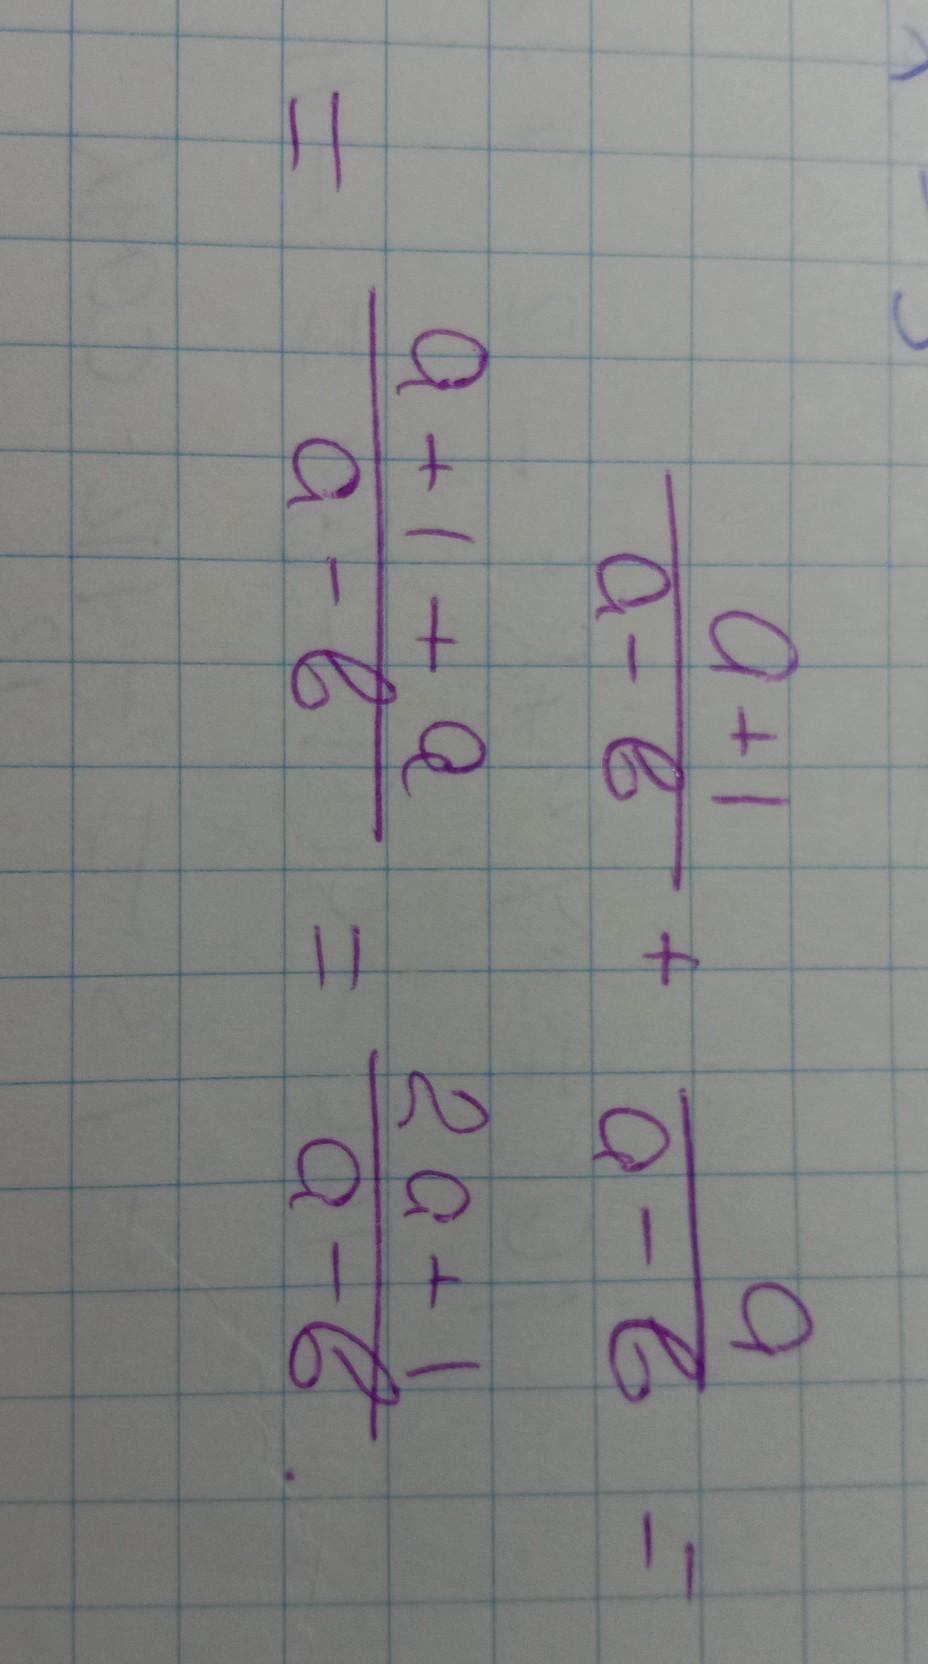 (a+1)/(a-b) + a/(a-b) =
= (a+1+a)/(a-b) = (2a+1)/(a-b).